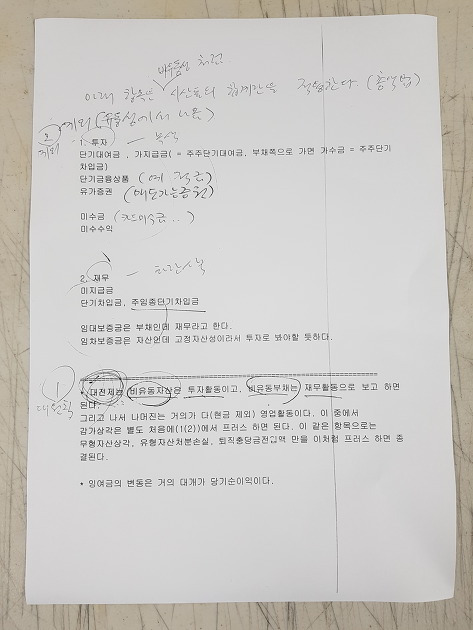 아래 항목은 자산들의 합계만을 적습한다 (총액법)
2 예외 (유동성에서 나옴)
예외
1. 투자 — 녹색
단기대여금 , 가지급금( = 주주단기대여금, 부채쪽으로 가면 가수금 = 주주단기
차입금)
단기금융상품 (예 적금)
유가증권 (매도가능증권)
미수금 (카드미수금..)
미수수익
2. 재무 — 파란색
미지급금
단기차입금, 주임종단기차입금
임대보증금은 부채인데 재무라고 한다.
임차보증금은 자산인데 고정자산성이라서 투자로 봐야할 듯하다.
1
대원칙
* 대전제는 비유동자산은 투자활동이고, 비유동부채는 재무활동으로 보고 하면
된다.
그리고 나서 나머진는 거의가 다(현금 제외) 영업활동이다. 이 중에서
감가상각은 별도 처음에(1(2))에서 프러스 하면 된다. 이 같은 항목으로는
무형자산상각, 유형자산처분손실, 퇴직충당금전입액 만을 이처럼 프러스 하면 종
결된다.
* 잉여금의 변동은 거의 대개가 당기순이익이다.